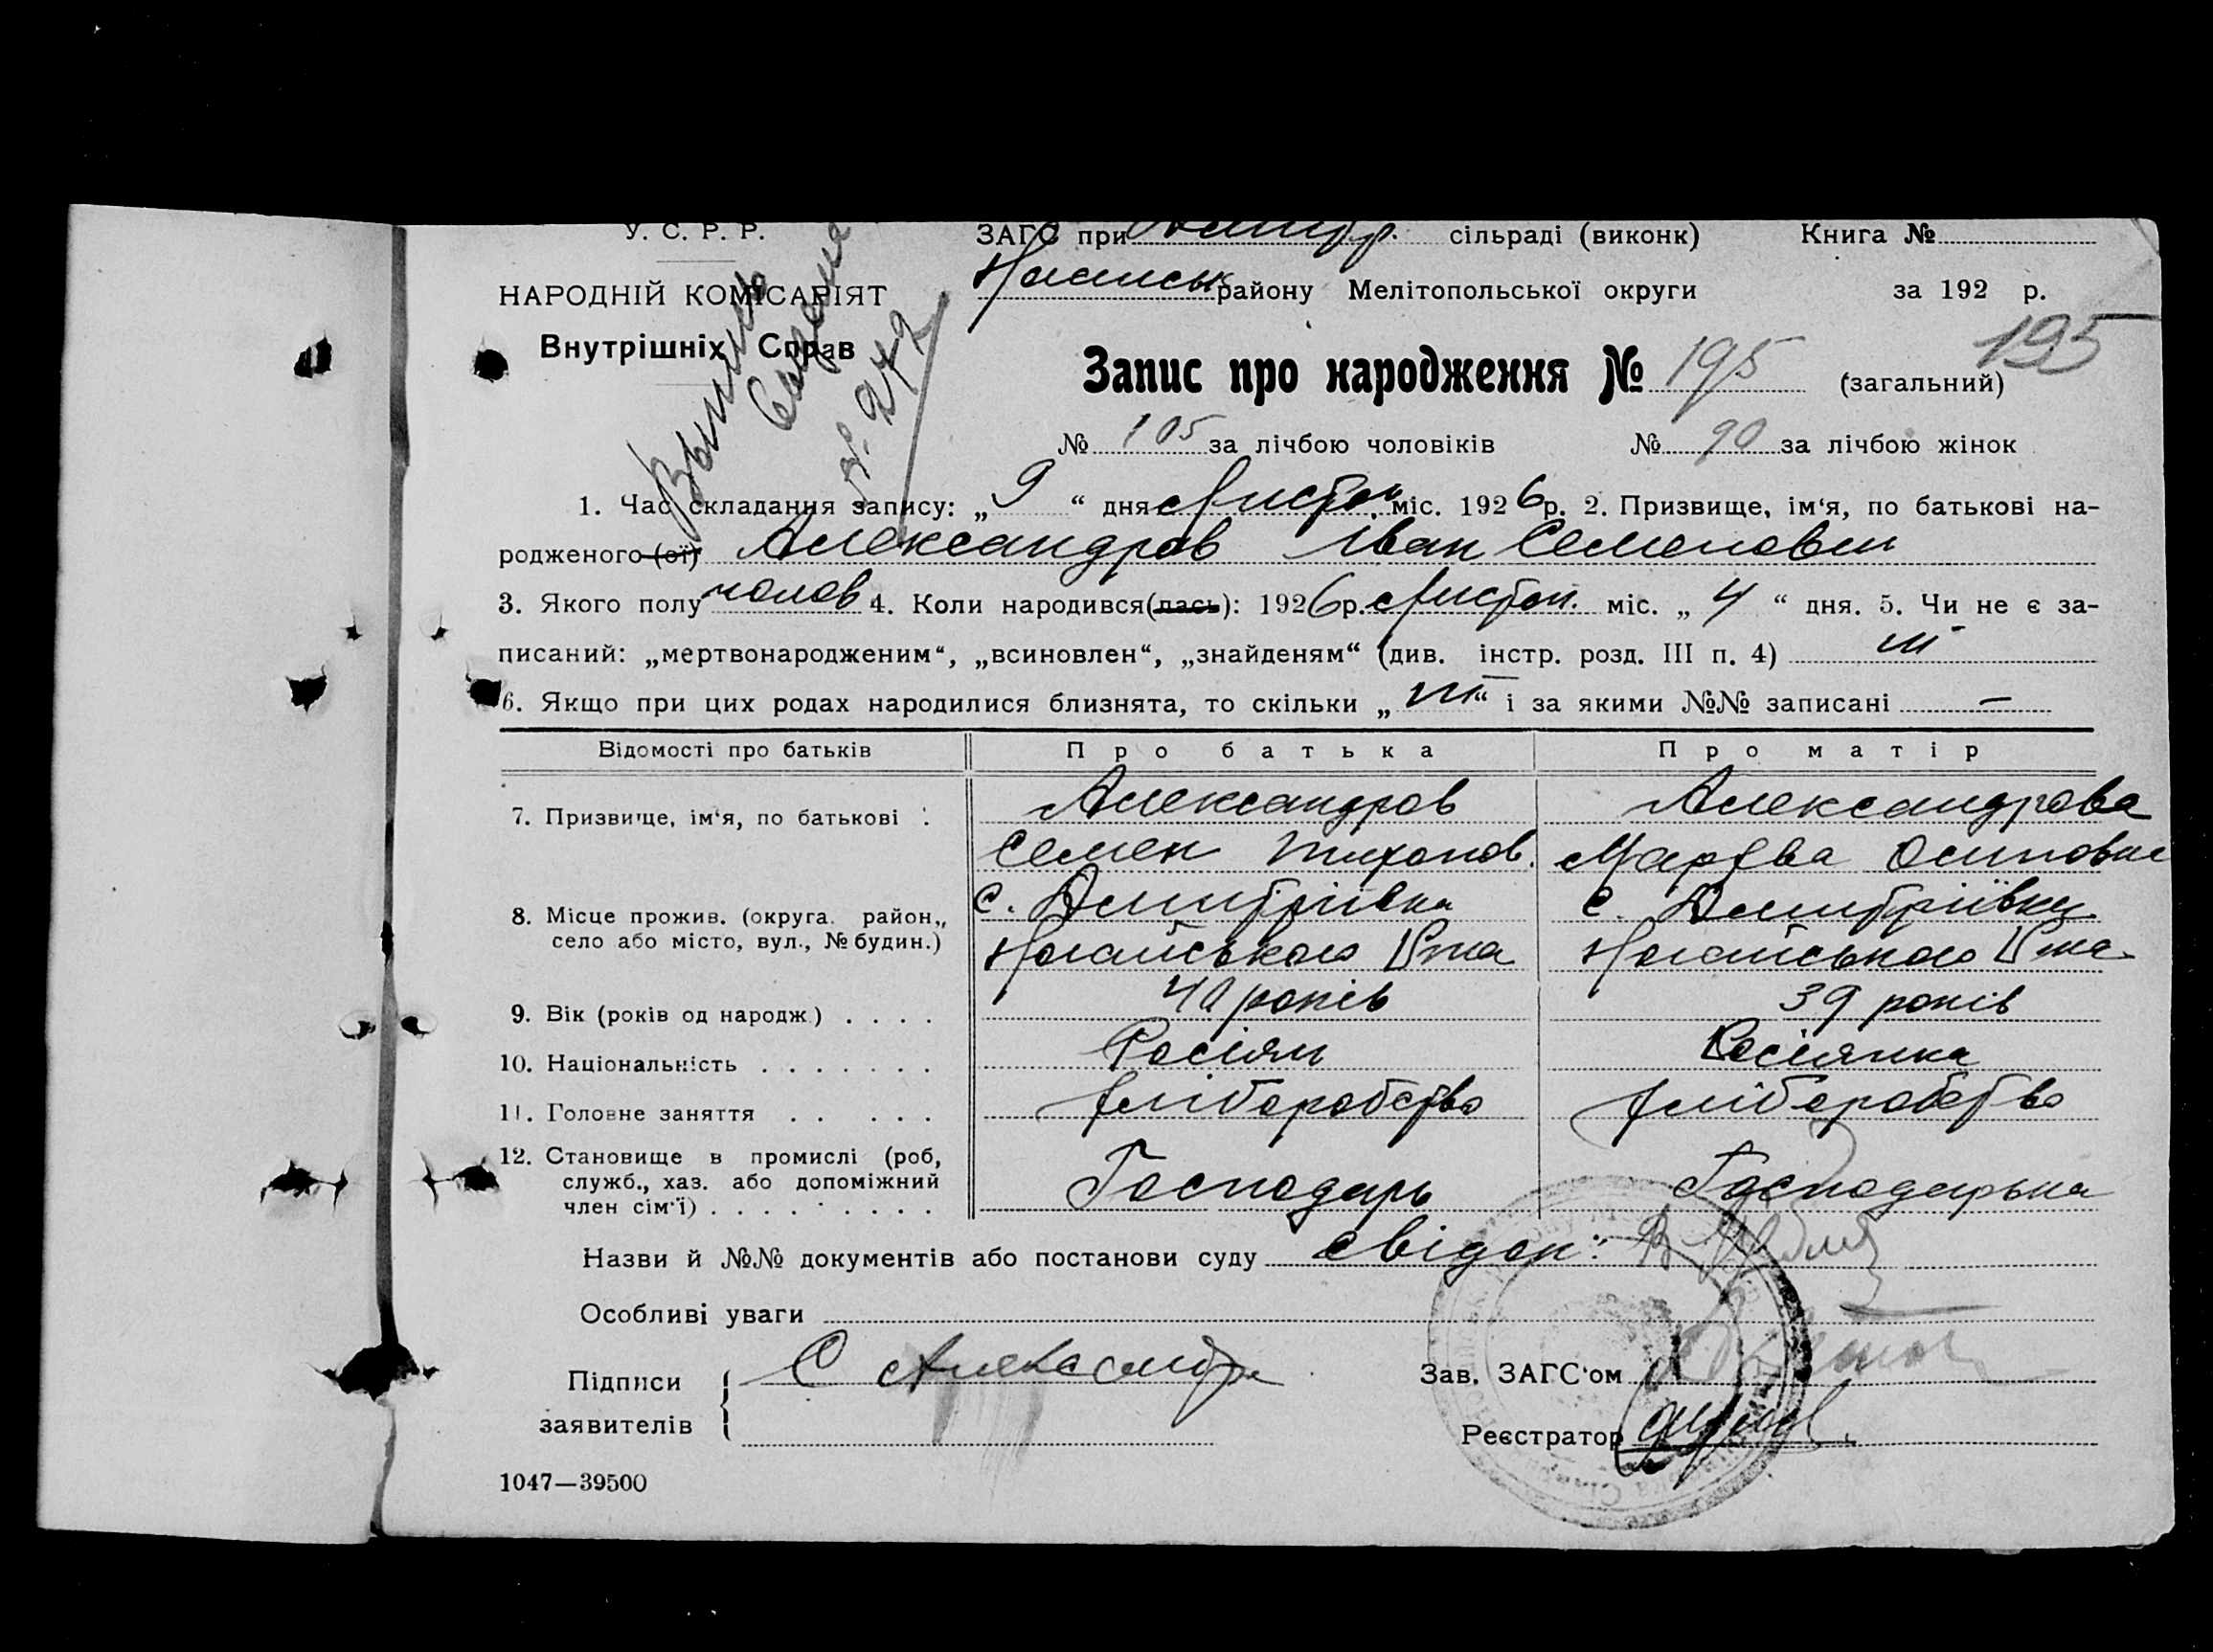 У. С. Р. Р. ЗАГС при сільраді (виконк) Книга №
НАРОДНІЙ КОМІСАРІЯТ району Мелітопольської округи за 192 р.
Внутрішніх Справ
195
Запис про народження № 195 (загальний)
№ 272
№ 105 за лічбою чоловіків № 90 за лічбою жінок
1. Час складання запису: „ 9 “ дня Листоп. міс. 1926 р. 2. Призвище, ім‘я, по батькові на-
родженого (ої) Александров Іван Семенович
3. Якого полу чолов 4. Коли народився(лась): 1926 р. Листоп. міс. „ 4 “ дня. 5. Чи не є за-
писаний: „мертвонародженим“, „всиновлен“, „знайденям“ (див. інстр. розд. III п. 4) ні
6. Якщо при цих родах народилися близнята, то скільки „ ні “ і за якими №№ записані —
Відомості про батьків Про батька Про матір
7. Призвище, ім‘я, по батькові : Александров Александрова
Семен Тихонов. Марфа Осиповна
8. Місце прожив. (округа. район,, с. Дмитрівка с. Дмитріївки
село або місто, вул., № будин.) Ногайського Р-на Ногайського Р-на
9. Вік (років од народж.) . . . . 40 років 39 років
10. Національність . . . . . . . Росіян Росіянка
11. Головне заняття . . . . . Хліборобство Хліборобство
12. Становище в промислі (роб,
служб., хаз. або допоміжний Господарь Господарька
член сім‘ї) . . . . . . . . .
Назви й №№ документів або постанови суду свідок:
Особливі уваги
Підписи С Александро
заявителів
Зав. ЗАГС‘ом
Реєстратор
1047—39500